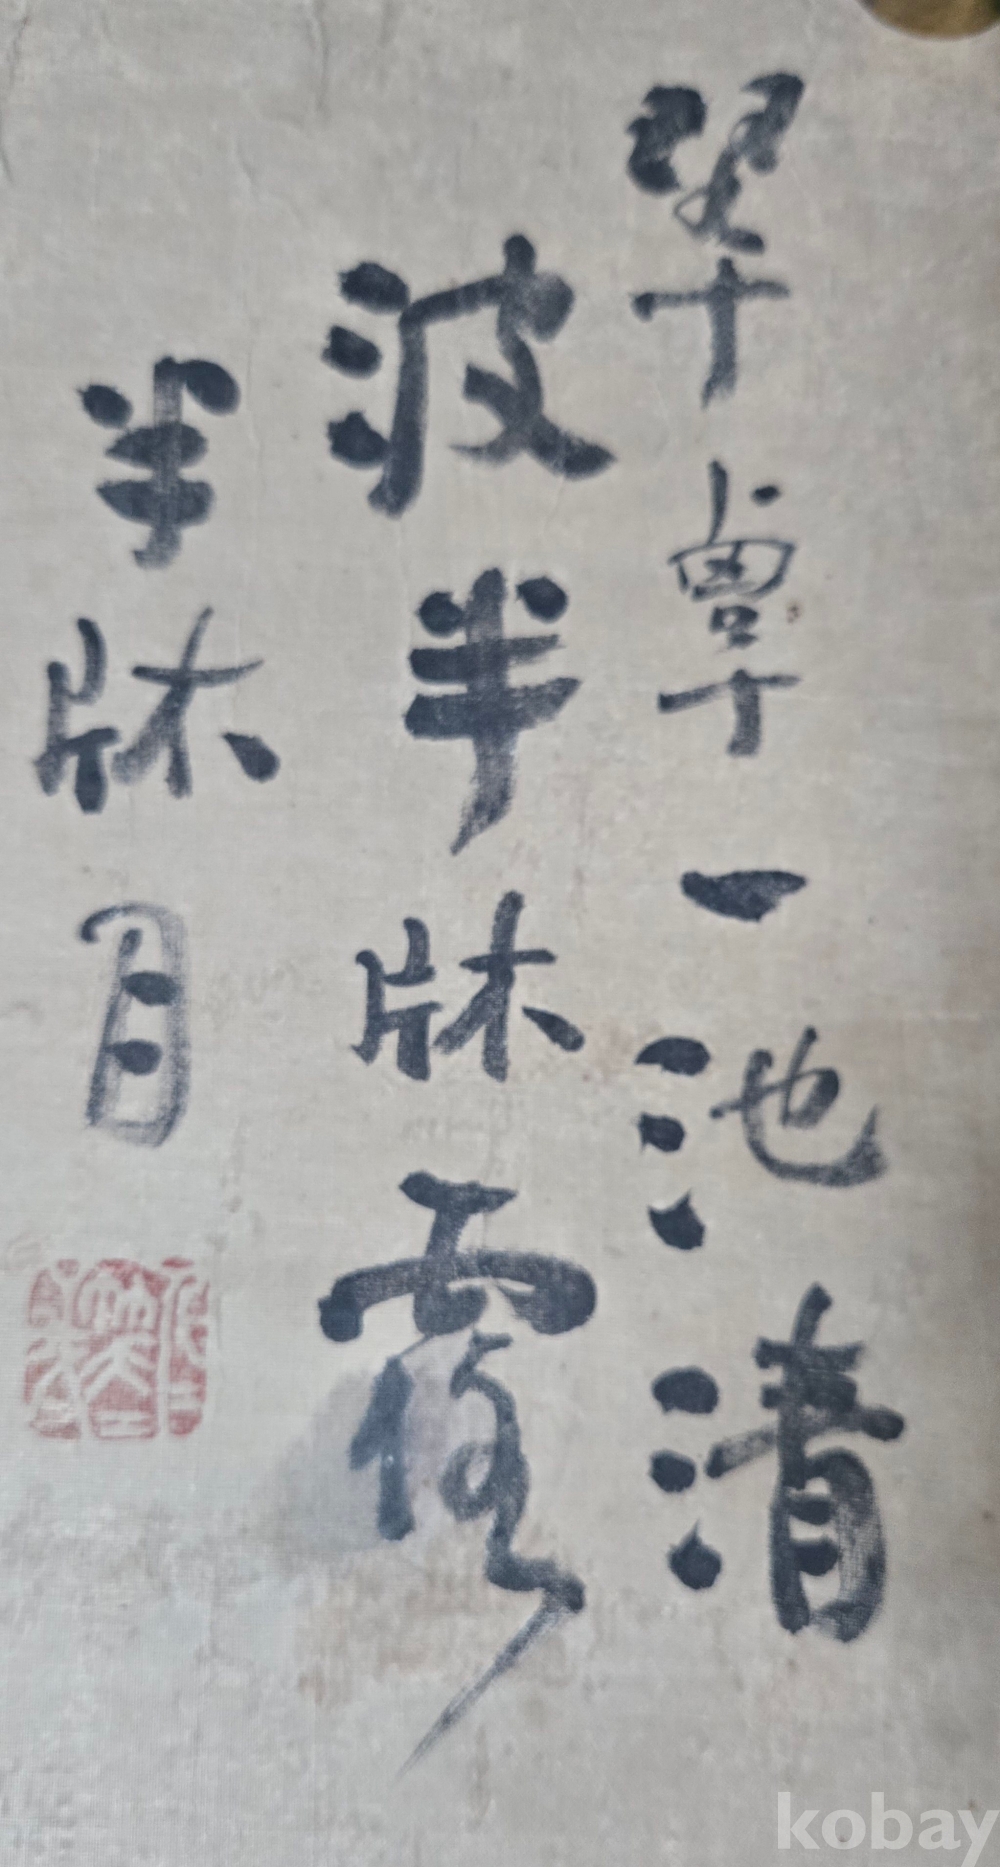 翠覃一池清
波半牀露
半牀月
kobay